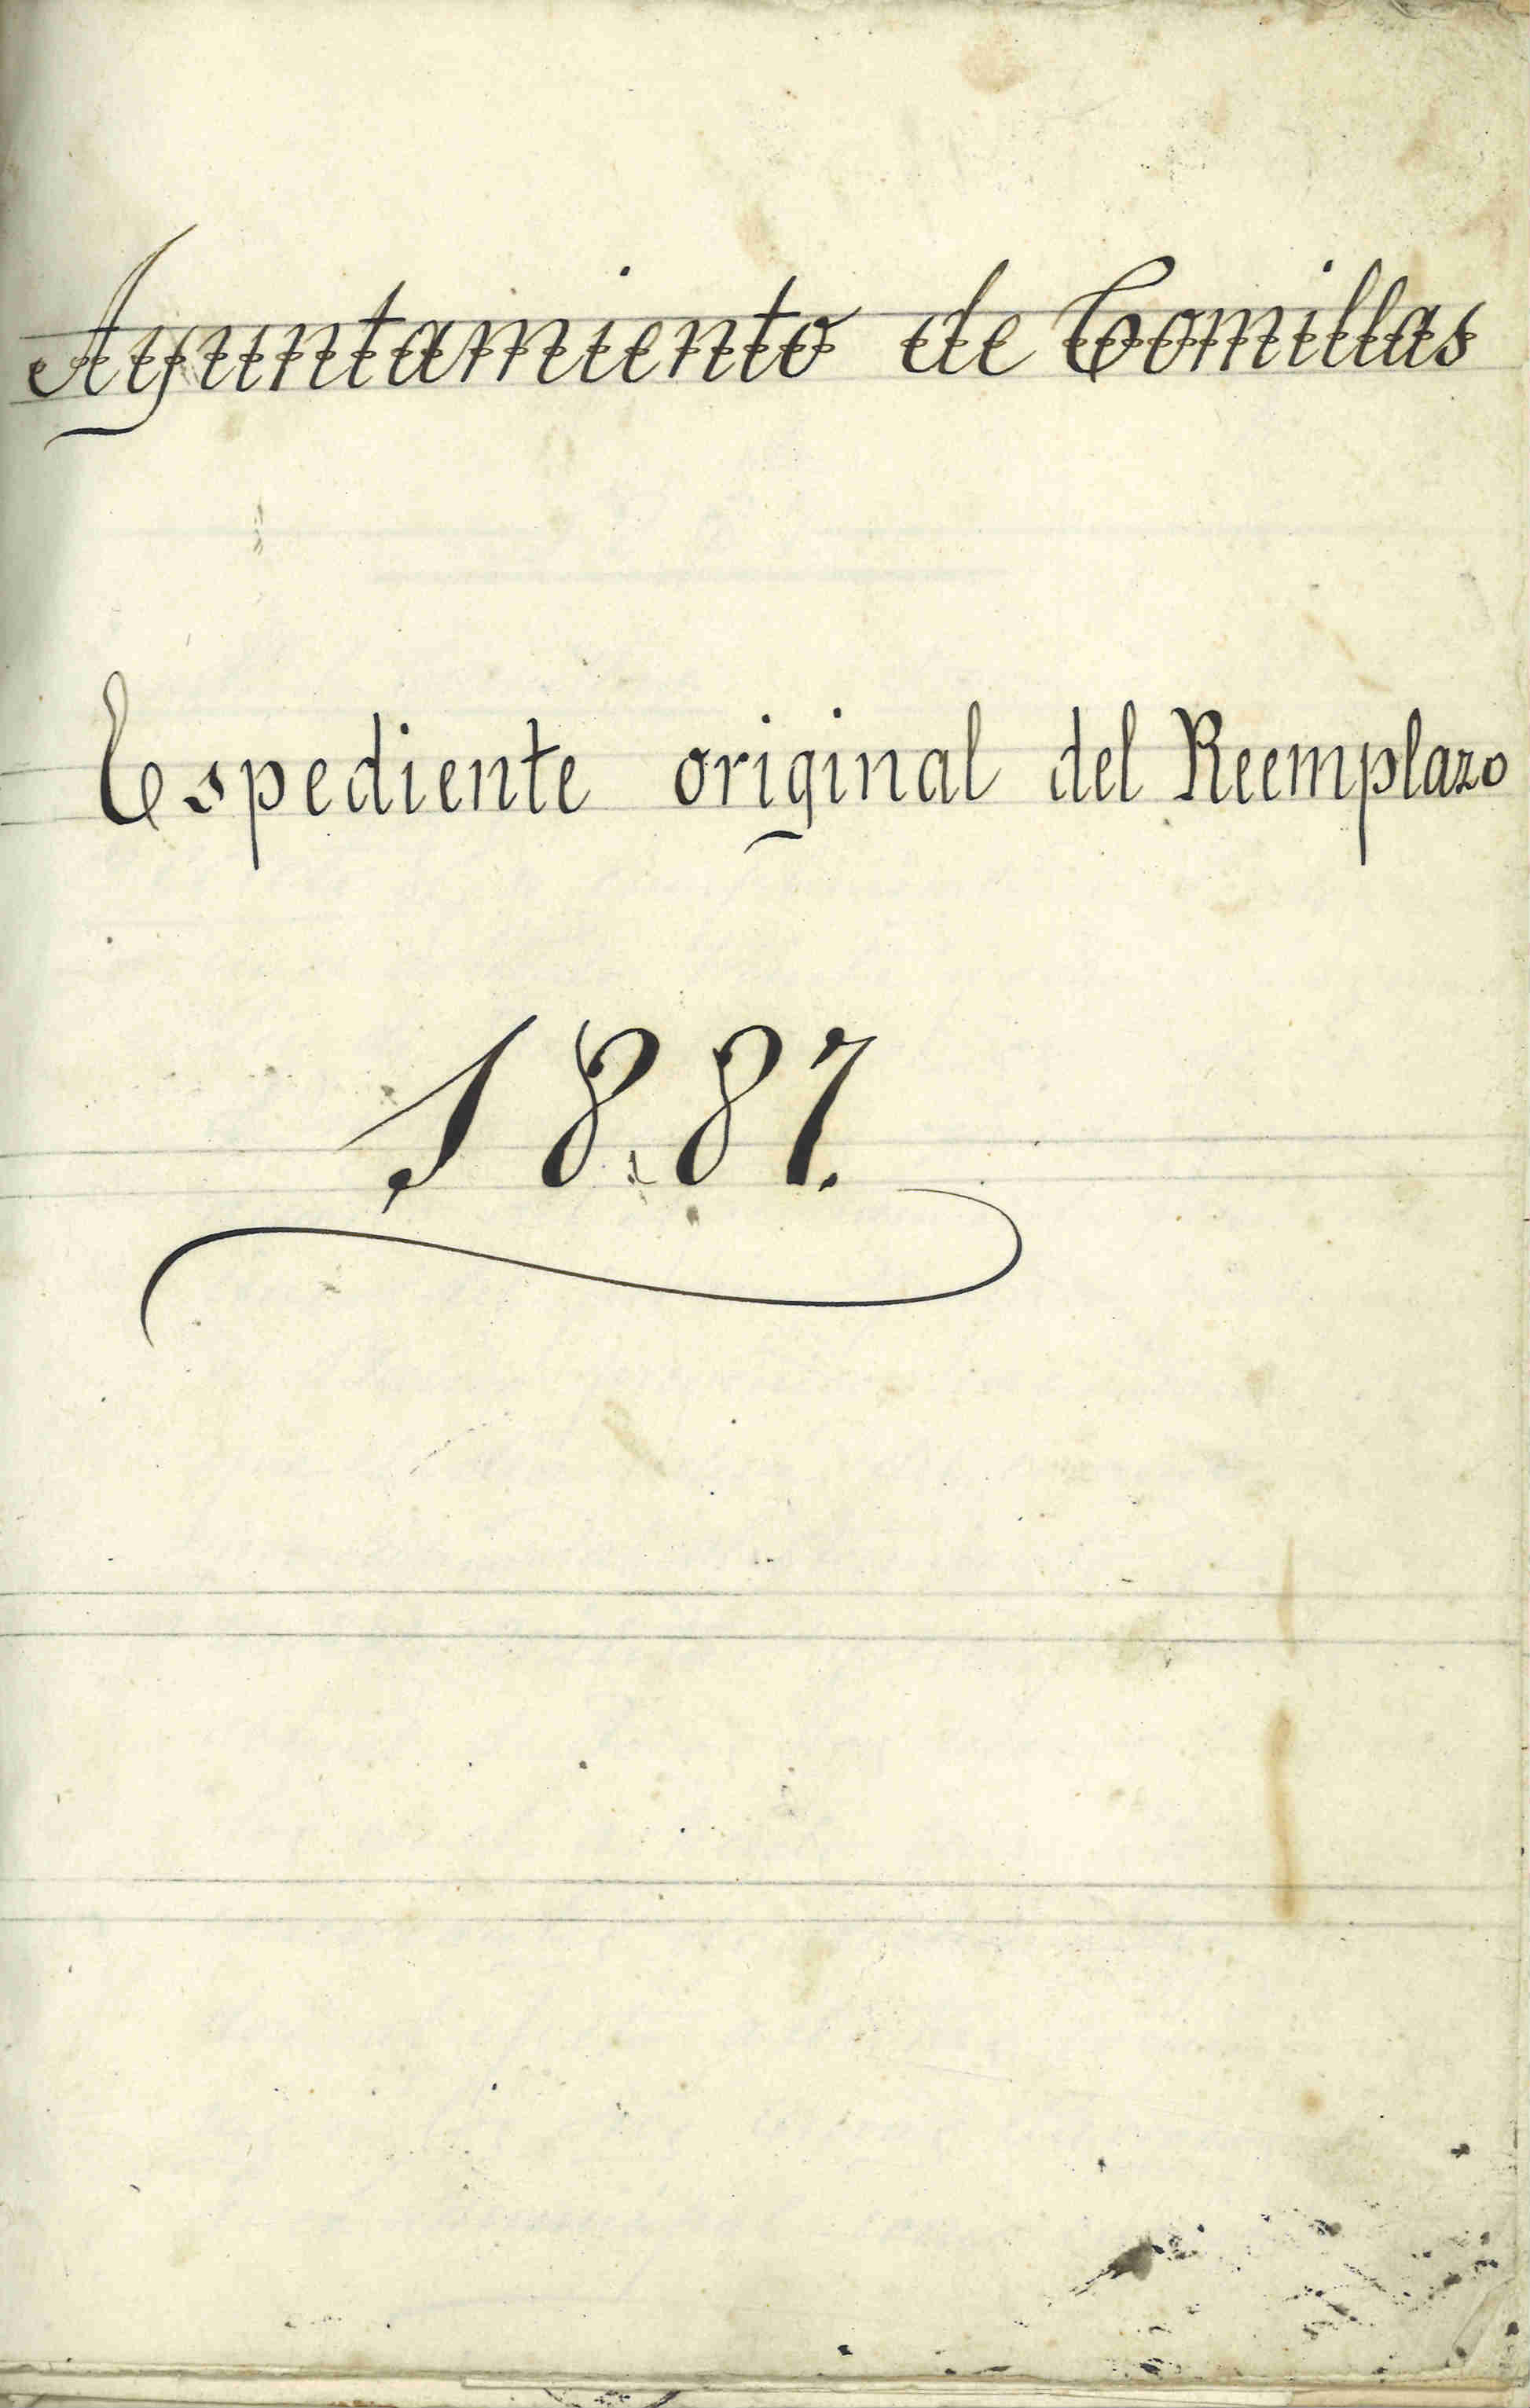 Ayuntamiento de Comillas
Espediente original del Reemplazo
1887.